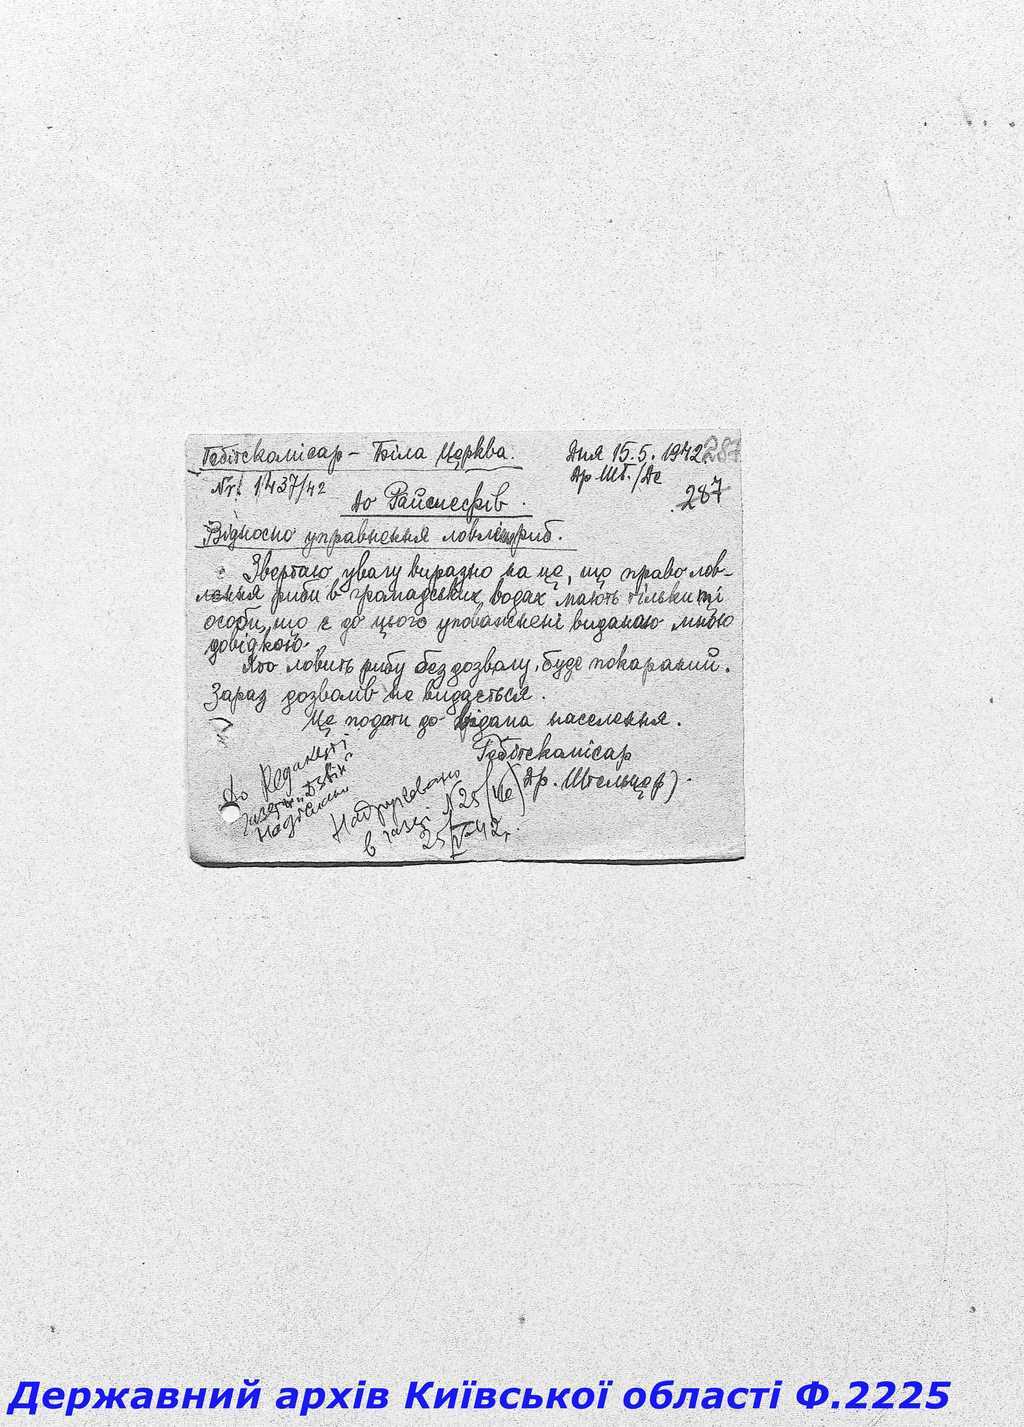 Гебітскомісар – Біла Церква. Дня 15.5.1942 287
Nr. 1437/42 Др Шт./Де
До Райшефів. 287
Відносно управнення ловлі риб.
Звертаю увагу виразно на це, що право лов-
лення риби в громадських водах мають тільки ті
особи, що є до цього уповажнені виданою мною
довідкою.
Хто ловить рибу без дозволу, буде покараний.
Зараз дозволів не видається.
Це подати до відома населення.
Гебітскомісар
Др. Штельцер).
До Редакції
газети „Дзвін"
Надруковано
в газеті N 25 (46)
25/V-42 р.
Державний архів Київської області Ф.2225